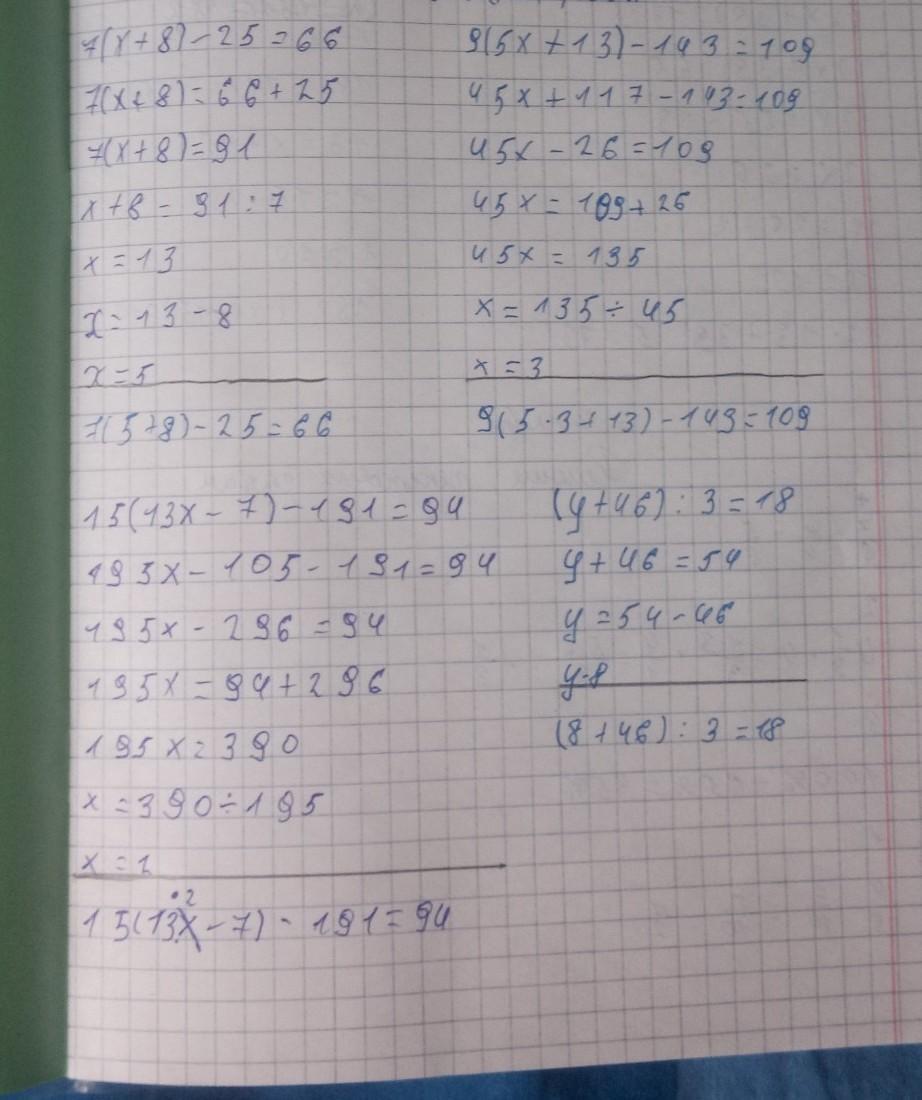 7(x+8)-25=66
7(x+8)=66+25
7(x+8)=91
x+8=91:7
x=13
x=13-8
x=5
7(5+8)-25=66
9(5x+13)-143=109
45x+117-143=109
45x-26=109
45x=109+26
45x=135
x=135÷45
x=3
9(5·3+13)-143=109
15(13x-7)-191=94
195x-105-191=94
195x-296=94
195x=94+296
195x=390
x=390÷195
x=2
·2
15(13x-7)-191=94
(y+46):3=18
y+46=54
y=54-46
y=8
(8+46):3=18